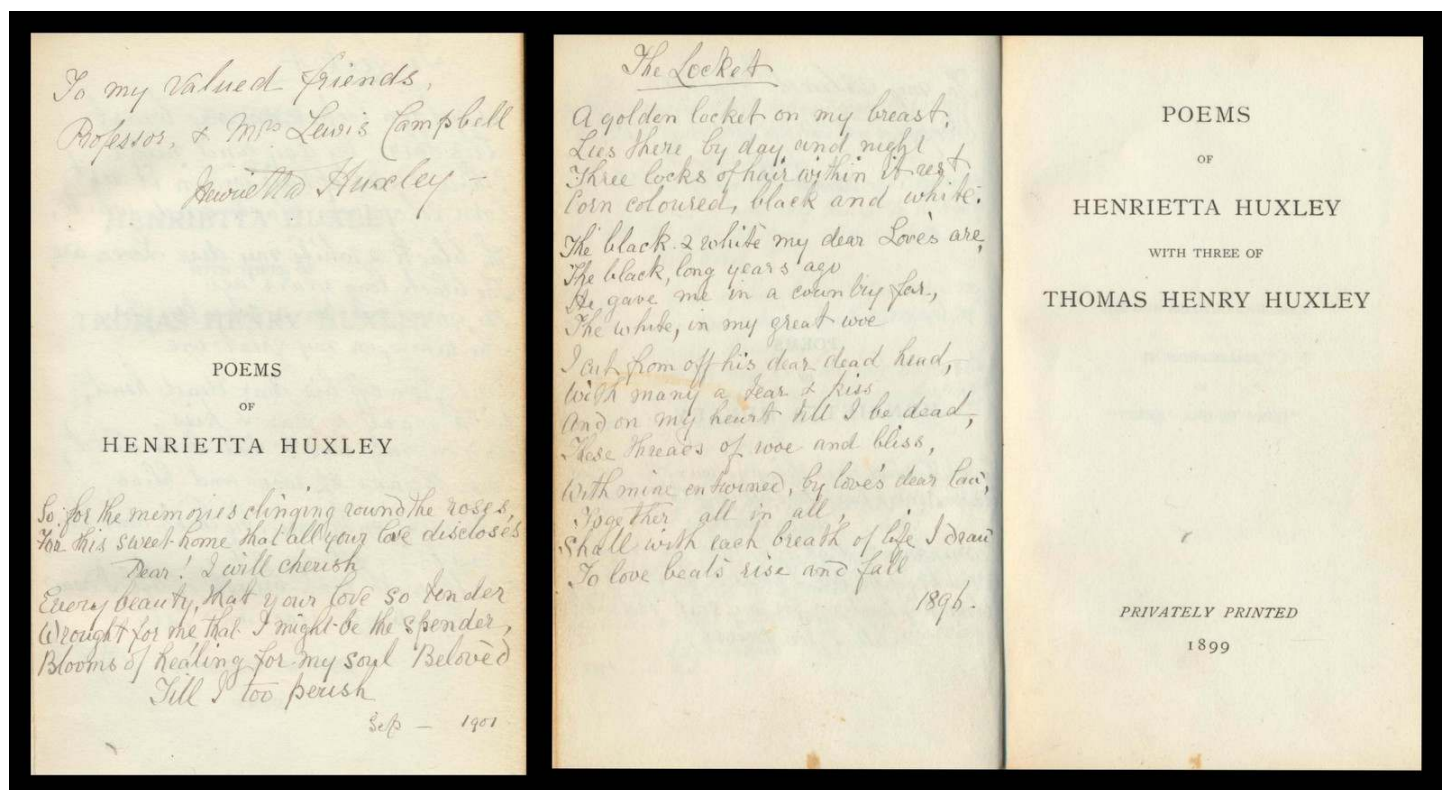 To my valued friends,
Professor, & Mrs Lewis Campbell
Henrietta Huxley –
POEMS
OF
HENRIETTA HUXLEY
So for the memories clinging round the roses,
For this sweet home that all your love discloses
Dear! I will cherish
Every beauty, that your love so tender
Wrought for me that I might be the spender,
Blooms of healing for my soul Beloved
Till I too perish
Sep – 1901
The Locket
A golden locket on my breast,
Lies there by day and night
Three locks of hair within it rest
Corn coloured, black and white.
The black & white my dear Love's are,
The black, long years ago
He gave me in a country far,
The white, in my great woe
I cut from off his dear dead head,
With many a tear & kiss
And on my heart till I be dead,
These threads of woe and bliss,
With mine entwined, by love's dear law,
Together all in all,
Shall with each breath of life I draw
To love beats rise and fall
1896.
POEMS
OF
HENRIETTA HUXLEY
WITH THREE OF
THOMAS HENRY HUXLEY
PRIVATELY PRINTED
1899